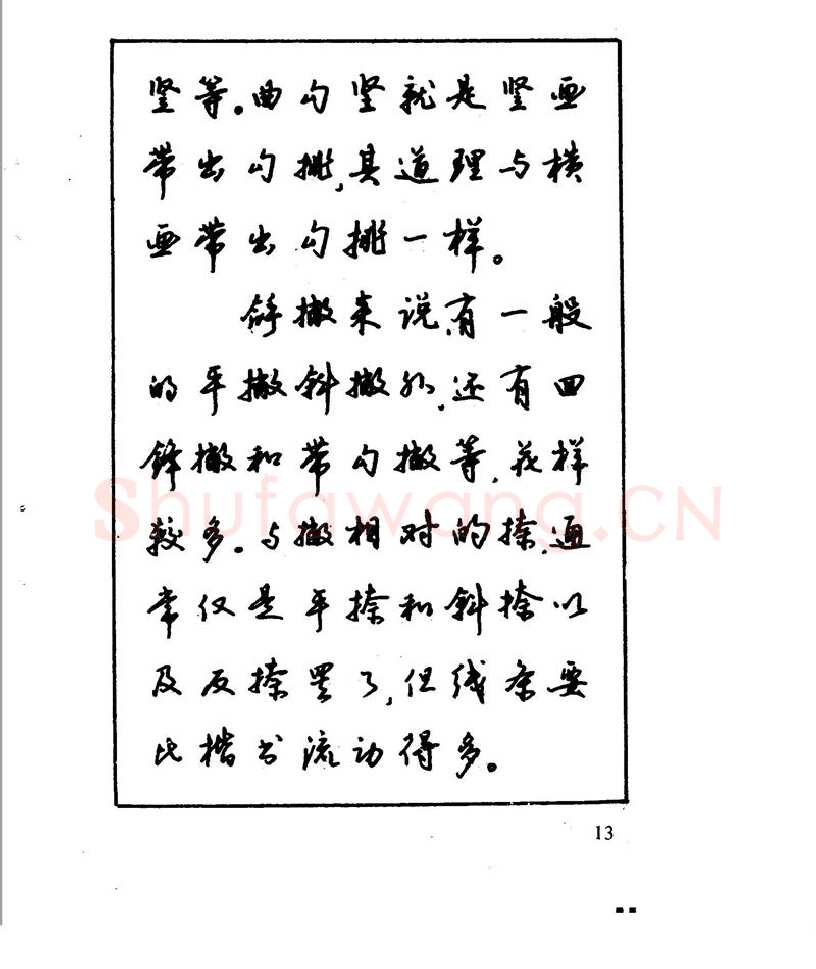 竖等。曲勾竖就是竖画
带出勾挑,其道理与横
画带出勾挑一样。
斜撇来说,有一般
的平撇斜撇外,还有回
锋撇和带勾撇等,花样
较多。与撇相对的捺,通
常仅是平捺和斜捺以
及反捺罢了,但线条要
比楷书流动得多。
Shufawang.CN
13